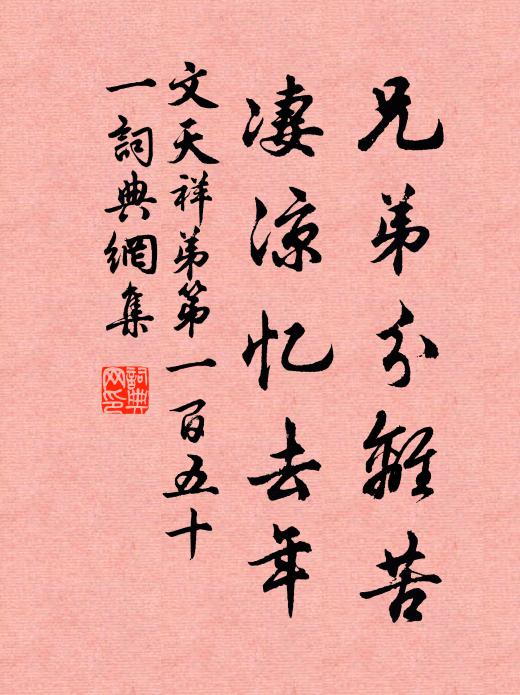 兄弟分離苦
凄凉忆去年
文天祥弟第一百五十
一詞典網集
詞典网印